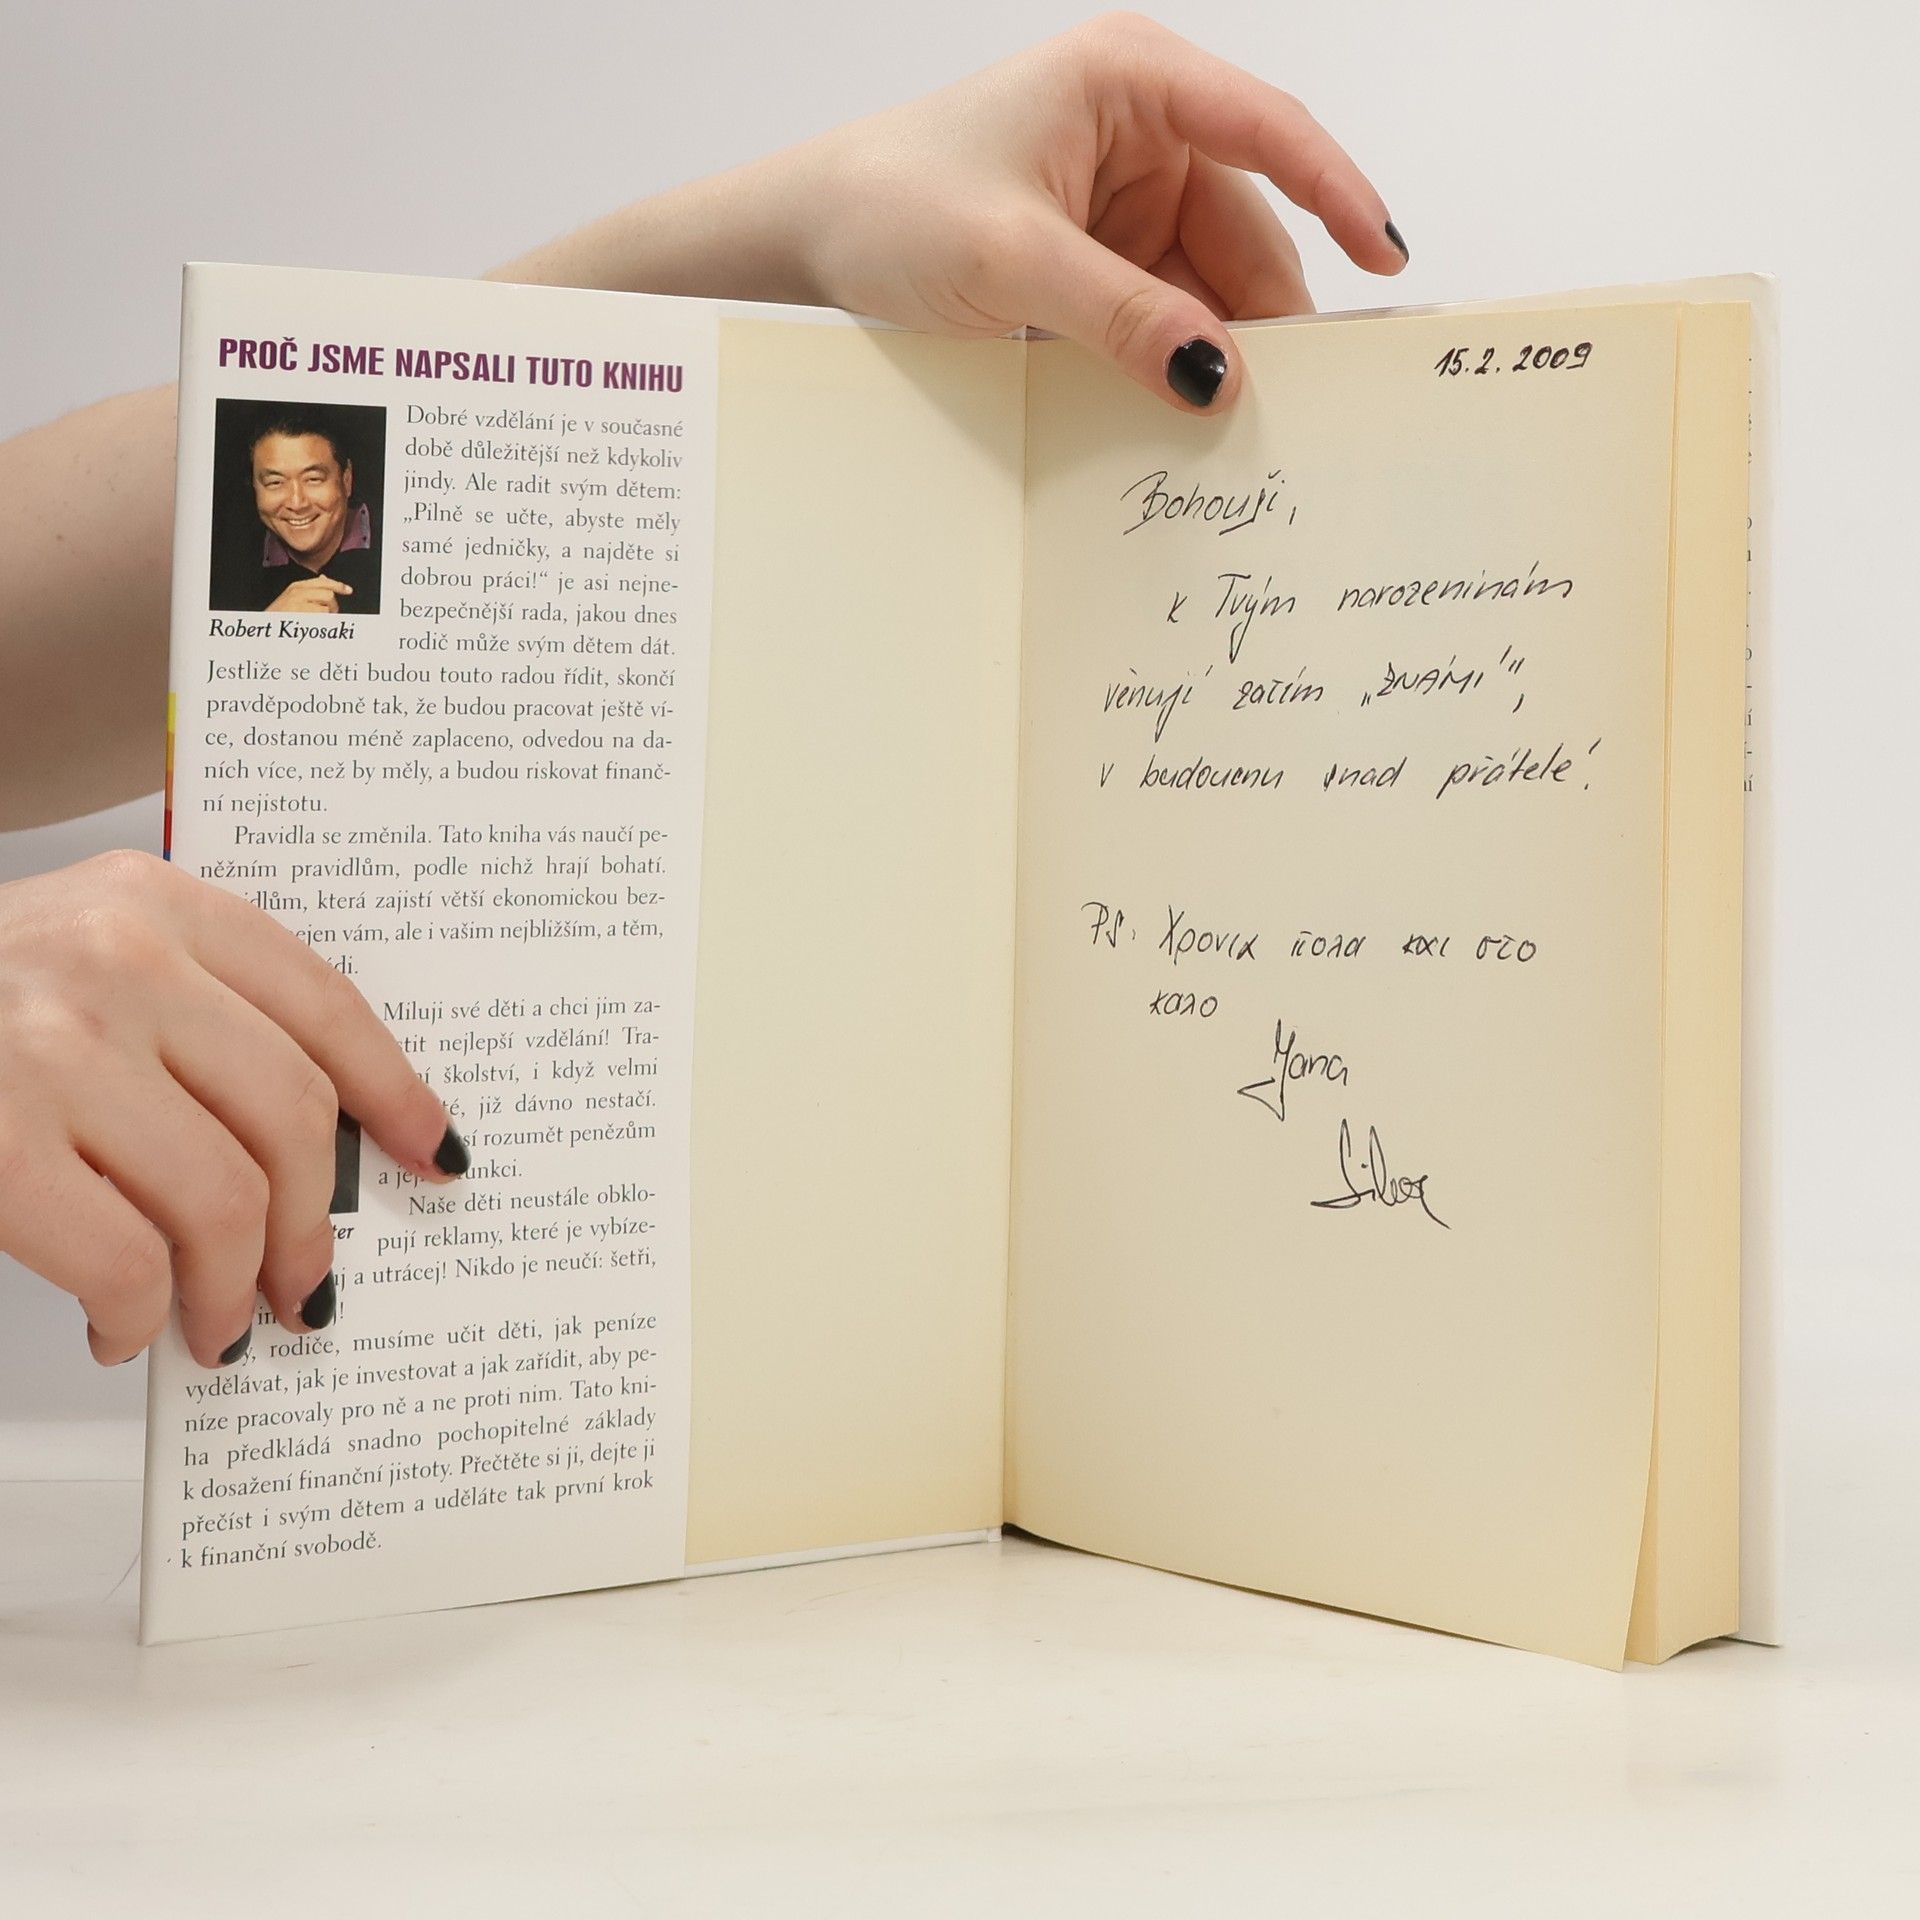 PROČ JSME NAPSALI TUTO KNIHU
Dobré vzdělání je v současné
době důležitější než kdykoliv
jindy. Ale radit svým dětem:
„Pilně se učte, abyste měly
samé jedničky, a najděte si
dobrou práci!“ je asi nejne-
bezpečnější rada, jakou dnes
rodič může svým dětem dát.
Robert Kiyosaki
Jestliže se děti budou touto radou řídit, skončí
pravděpodobně tak, že budou pracovat ještě ví-
ce, dostanou méně zaplaceno, odvedou na da-
ních více, než by měly, a budou riskovat finanč-
ní nejistotu.
Pravidla se změnila. Tato kniha vás naučí pe-
něžním pravidlům, podle nichž hrají bohatí.
idlům, která zajistí větší ekonomickou bez-
ejen vám, ale i vašim nejbližším, a těm,
di.
Miluji své děti a chci jim za-
stit nejlepší vzdělání! Tra-
ní školství, i když velmi
té, již dávno nestačí.
sí rozumět penězům
a jej unkci.
Naše děti neustále obklo-
pují reklamy, které je vybíze-
ter
uj a utrácej! Nikdo je neučí: šetři,
in j!
y, rodiče, musíme učit děti, jak peníze
vydělávat, jak je investovat a jak zařídit, aby pe-
níze pracovaly pro ně a ne proti nim. Tato kni-
ha předkládá snadno pochopitelné základy
k dosažení finanční jistoty. Přečtěte si ji, dejte ji
přečíst i svým dětem a uděláte tak první krok
k finanční svobodě.
15.2.2009
Bohouši,
k Tvým narozeninám
věnují zatím „ZNÁMÍ“,
v budoucnu snad přátelé!
PS: Χρονια πολα και στο
καλο
Jana
Libor